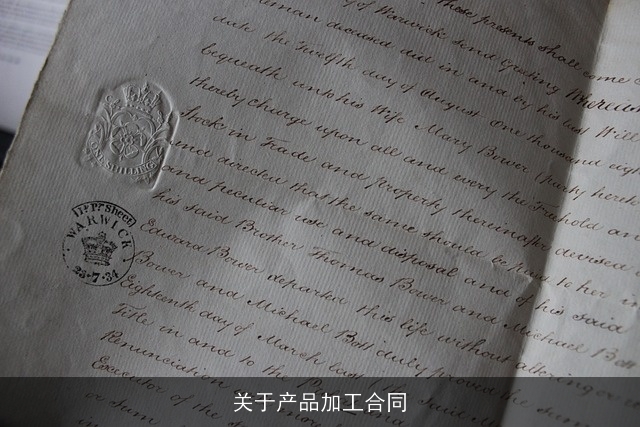 these presents shall come
of Warwick send Greeting Whereas
deceased did in and by his last Will
date the Twelfth day of August One thousand eigh
bequeath unto his Wife Mary Bower
thereby charge upon all and every the Freehold and
Stock in Trade and property thereinafter devised
and directed that the same should be paid to her
and peculiar use and disposal and of his said
his said Brother Thomas Bower and Michael Bott
Edward Bower departed this life without altering
Bower and Michael Bott duly proved the same
Eighteenth day of March last the said
Title in and to the
Renunciation
Executor of the
or sum
ONE SHILLING
11s Pr Sheet
WARWICK
23·7·34
关于产品加工合同